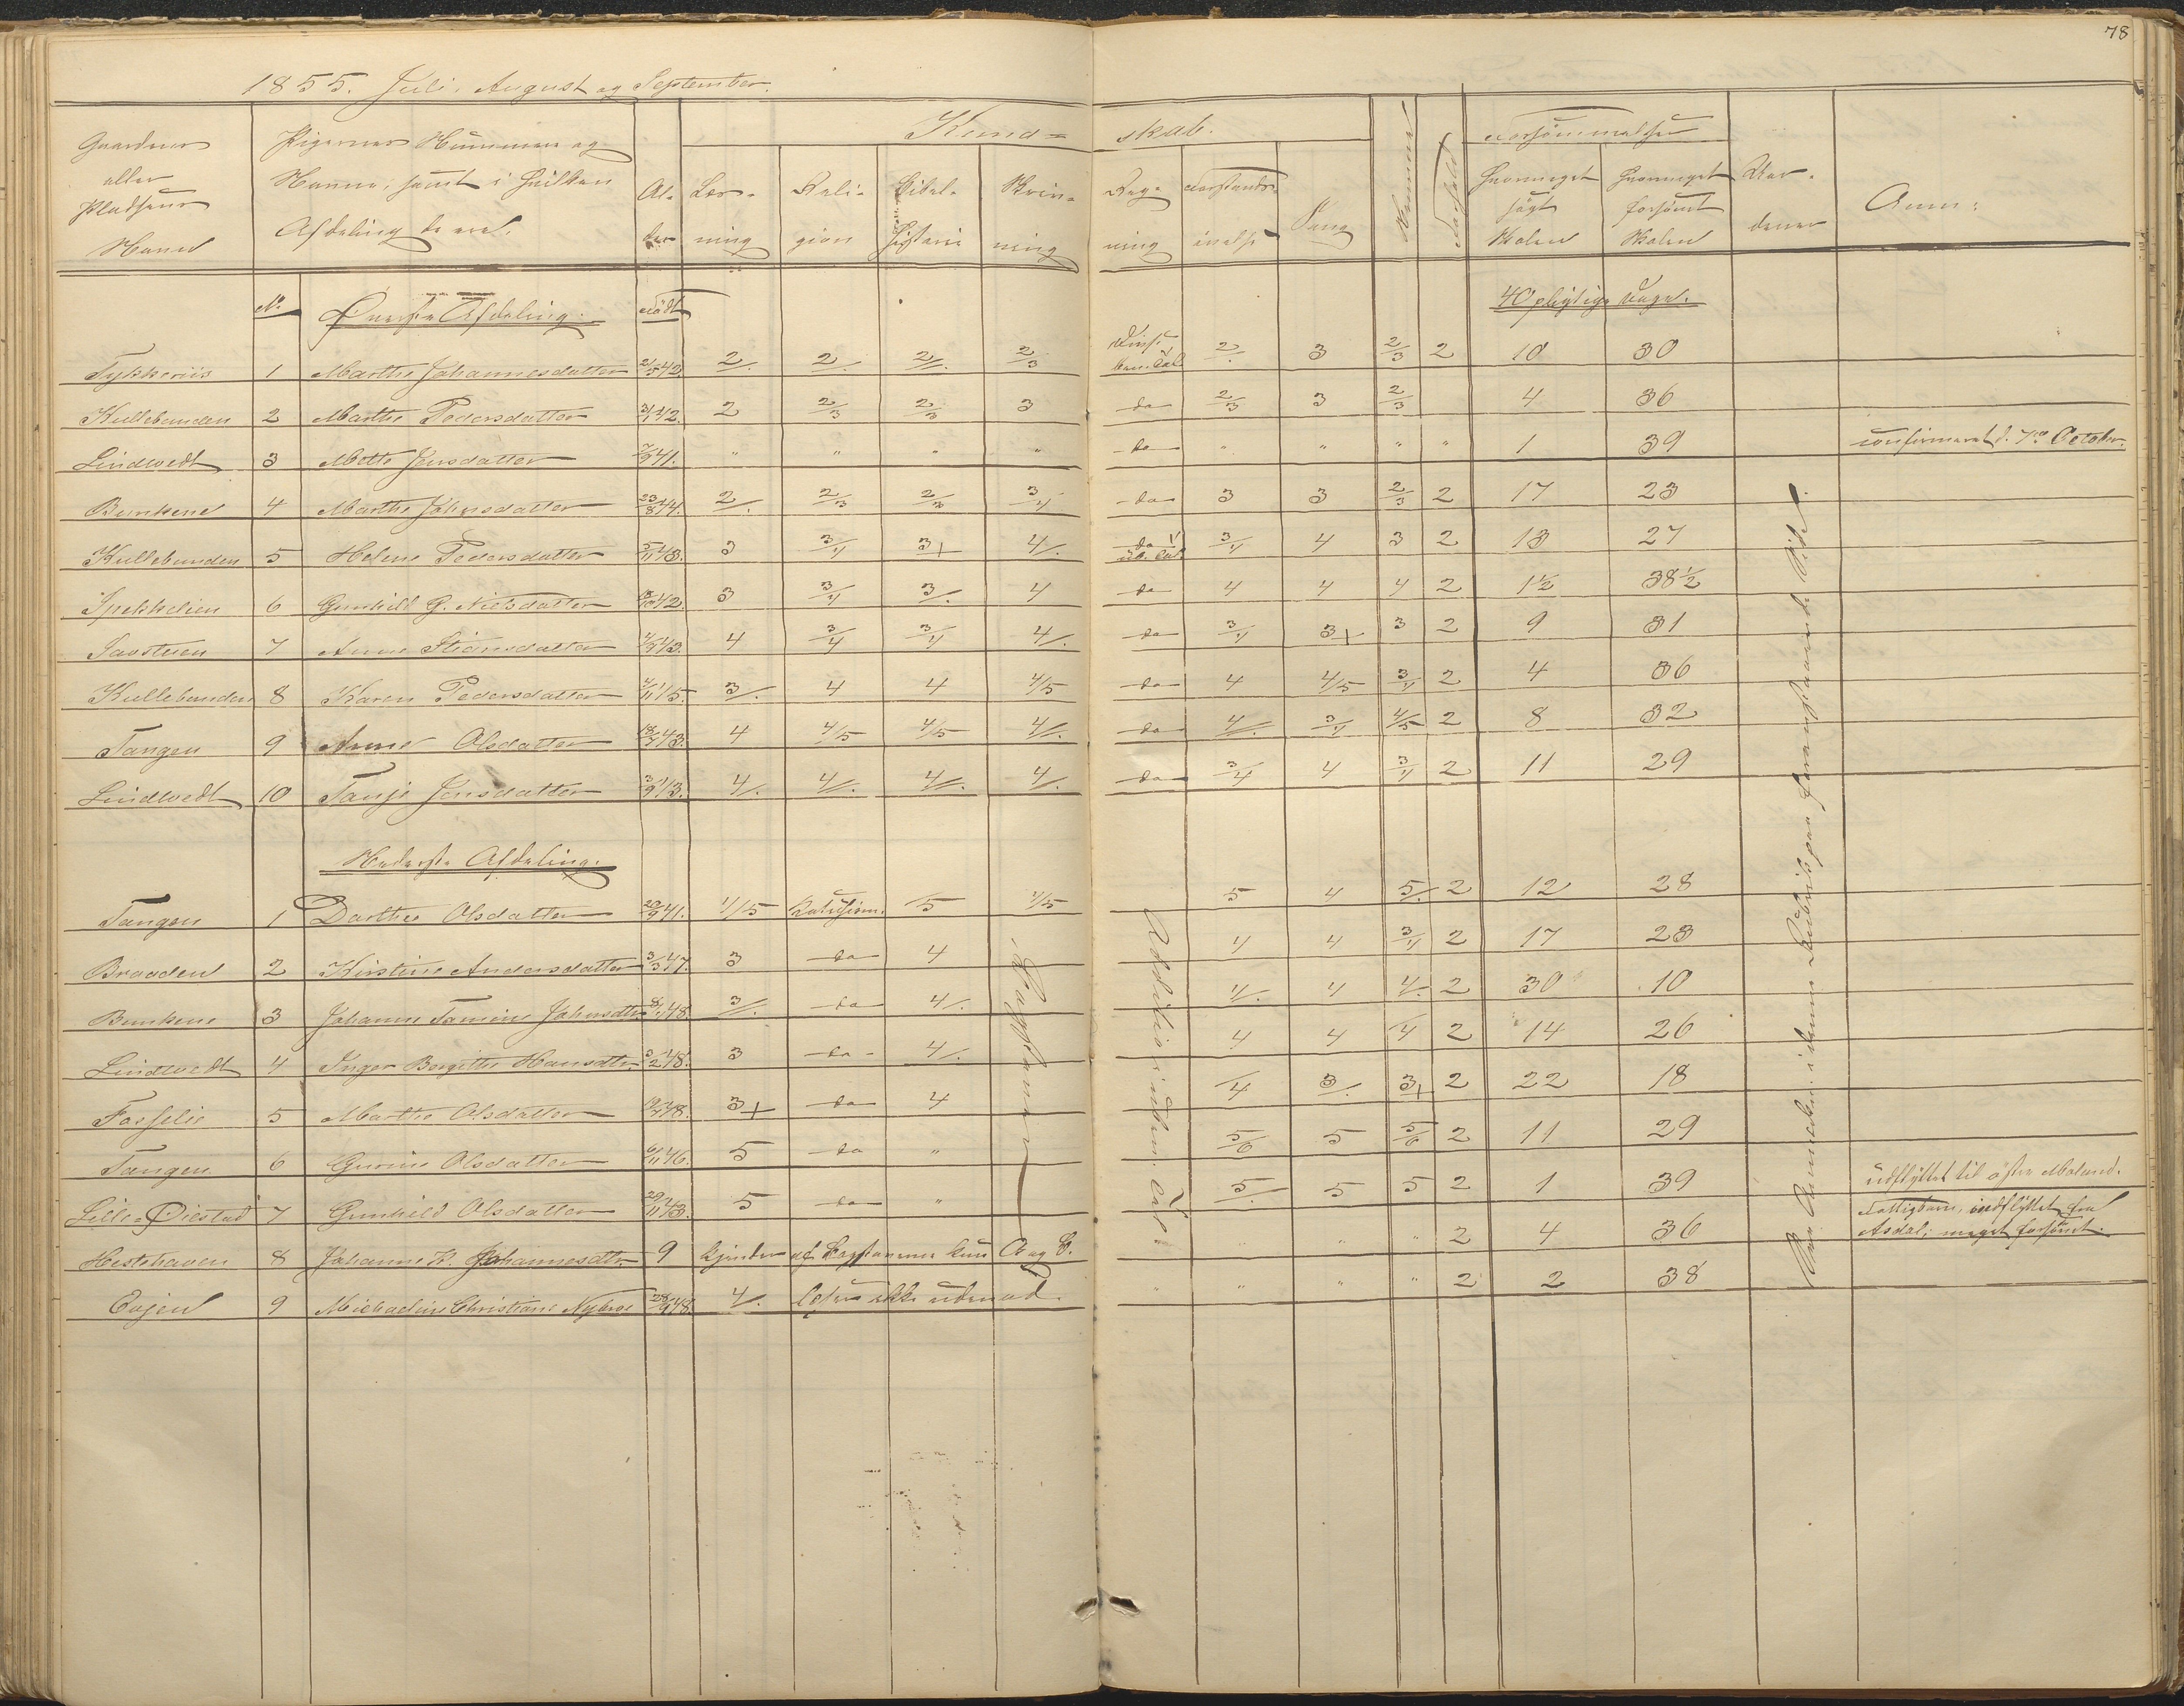 78
1855. Juli, August og September.
Gaardens eller Pladsens Navn
Pigernes Nummer og Navne, samt i hvilken Afdeling de ere.
Al- der
Kund- skab.
Læs- ning
Reli- gion
Bibel- historie
Skriv- ning
Reg- ning
Forstands- øvelse
Sang
Nemme
Forhold
Forsömmelser
Hvormeget søgt Skolen
Hvormeget forsömt Skolen
Anm:
No. Øverste Afdeling. Födt 40 pligtige Dage.
Tykkeriis 1 Marthe Johannesdatter 2/5 42. 2/. 2/. 2//. 2/3 2/. 3 2/3 2 10 30
Kullebunden 2 Marthe Pedersdatter 3/1 42. 2 2/3 2/3 3 do 2/3 3 2/3 4 36
Lindtvedt 3 Mette Jensdatter 7/9 41. " " " " do " " " " 1 39 confirmeret d. 7de October.
Bunkene 4 Marthe Johnsdatter 23/8 44. 2/. 2/3 2/3 3/4 do 3 3 2/3 2 17 23
Kullebunden 5 Helene Pedersdatter 5/11 43. 3 3/4 3+ 4/. do 3/4 4 3 2 13 27
Spekkelien 6 Gunhild G. Nielsdatter 42. 3 3/4 3/. 4 do 4 4 4 2 1½ 38½
Savstuen 7 Anne 43. 4 3/4 3/4 4/. do 3/4 3+ 3 2 9 31
Kullebunden 8 Karen Pedersdatter 4/11 45. 3/. 4 4 4/5 do 4 4/5 3/4 2 4 36
Tangen 9 Anne Olsdatter 43. 4 4/5 4/5 4//. do 4//. 3/4 4/5 2 8 32
Lindtvedt 10 Tanje Jensdatter 3/9 43. 4/. 4//. 4//. 4/. do 3/4 4 3/4 2 11 29
Nederste Afdeling.
Tangen 1 Dorthe Olsdatter 20/9 41. 4/5 Katechism. 5 4/5 5 4 5/. 2 12 28
Braaden 2 Kirstine Andersdatter 3/3 47. 3 do 4 4 4 3/4 2 17 23
Bunkene 3 Johanne Tomine Johnsdtr. 48. 3//. do 4/. 4/. 4 4/. 2 30 10
Lindtvedt 4 Inger Bergitte Hansdtr. 3/2 48. 3 do 4/. 4 4 4 2 14 26
Fosselie 5 Marthe Olsdatter 48. 3+ do 4 4 3/. 3+ 2 22 18
Tangen 6 Gurine Olsdatter 6/11 46. 5 do " 5/6 5 5/6 2 11 29
Lille-Øiestad 7 Gunhild Olsdatter 29/11 43. 5 do " 5/. 5 5 2 1 39 udflyttet til östre Moland.
Hestehaven 8 Johanne K. Johannesdtr. 9 kjender af Bogstaverne kun A og B. " " 2 4 36 Fattigbarn, indflyttet fra Asdal; meget forsömt.
Engen 9 Michaeline Christiane Nybroe 28/9 48. 4/. læser ikke udenad. " " " " 2 2 38
Bogstaver